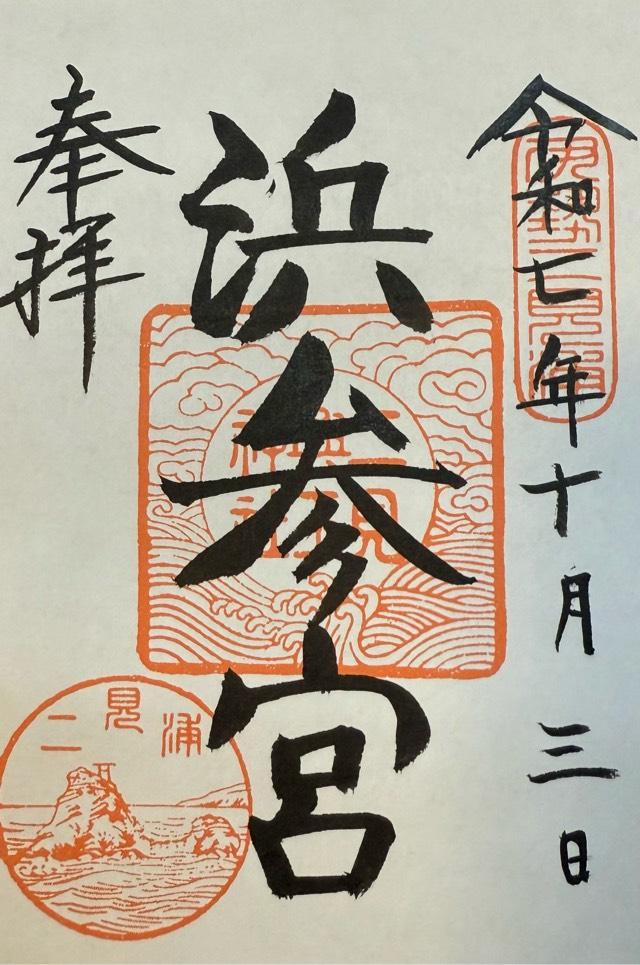 令和七年十月三日
伊勢二見浦
浜参宮
二見
興玉
神社
奉拝
二見浦